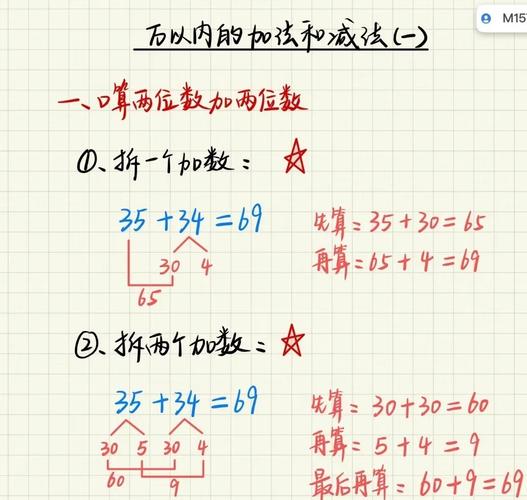 万以内的加法和减法(一)
M15
一、口算两位数加两位数
①、拆一个加数：
35+34=69
先算：35+30=65
30 4
再算：65+4=69
65
②、拆两个加数：
35+34=69
先算：30+30=60
30 5 30 4
再算：5+4=9
60 9
最后再算：60+9=69